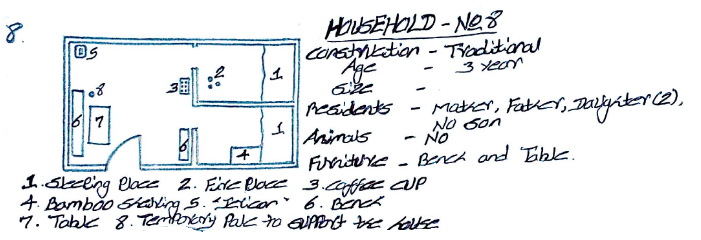 8.
HOUSEHOLD - NO.8
Construction - Traditional
Age - 3 year
Size -
Residents - Mother, Father, Daughter (2),
No Son
Animals - NO
Furniture - Bench and Table.
5
8
3
2
1
6
7
6
4
1
1. Sleeping Place 2. Fire Place 3. Coffee CUP
4. Bamboo Shelving 5. "Jelican" 6. Bench
7. Table 8. Temporary Pole to support the house